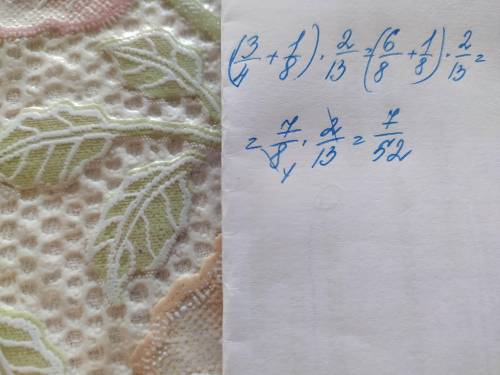 (3/4 + 1/8) · 2/13 = (6/8 + 1/8) · 2/13 =
= 7/8 · 2/13 = 7/52
4